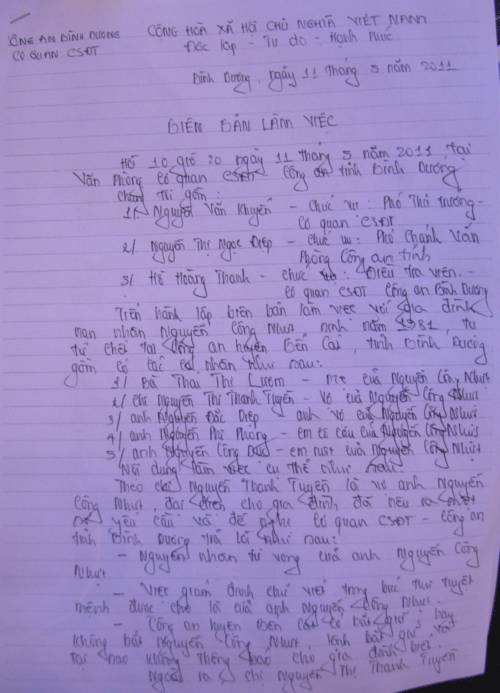 CÔNG AN BÌNH DƯƠNG CỘNG HOÀ XÃ HỘI CHỦ NGHĨA VIỆT NAM
CƠ QUAN CSĐT Độc lập - Tự do - Hạnh Phúc
Bình Dương, ngày 11 tháng 5 năm 2011
BIÊN BẢN LÀM VIỆC
Hồi 10 giờ 20 ngày 11 tháng 5 năm 2011, tại
Văn Phòng Cơ quan CSĐT Công an tỉnh Bình Dương
chúng tôi gồm:
1/ Nguyễn Văn Khuyến - Chức vụ: Phó Thủ trưởng -
Cơ quan CSĐT
2/ Nguyễn Thị Ngọc Điệp - Chức vụ: Phó Chánh Văn
Phòng Công an tỉnh
3/ Hồ Hoàng Thanh - chức vụ: Điều tra viên. -
Cơ quan CSĐT Công an Bình Dương
Tiến hành lập biên bản làm việc với gia đình
nạn nhân Nguyễn Công Nhựt, sinh năm 1981, tự
tử chết tại Công an huyện Bến Cát, tỉnh Bình Dương
gồm có các cá nhân như sau:
1/ Bà Thai Thị Lượm - mẹ của Nguyễn Công Nhựt
2/ chị Nguyễn Thị Thanh Tuyền - vợ của Nguyễn Công Nhựt
3/ anh Nguyễn Đắc Điệp anh vợ của Nguyễn Công Nhựt
4/ anh Nguyễn Phi Phòng - em cô cậu của Nguyễn Công Nhựt
5/ anh Nguyễn Công - em ruột của Nguyễn Công Nhựt
Nội dung làm việc cụ thể như sau:
Theo chị Nguyễn Thanh Tuyền là vợ anh Nguyễn
Công Nhựt, đại diện cho gia đình đã nêu ra
yêu cầu và đề nghị Cơ quan CSĐT - Công an
tỉnh Bình Dương trả lời như sau:
- Nguyên nhân tử vong của anh Nguyễn Công
Nhựt
- Việc giám định chữ viết trong bức thư tuyệt
mệnh được cho là của anh Nguyễn Công Nhựt.
- Công an huyện Bến Cát có bắt giữ hay
không bắt Nguyễn Công Nhựt, lệnh bắt giữ và
tại sao không thông báo cho gia đình biết.
Ngoài ra chị Nguyễn Thị Thanh Tuyền